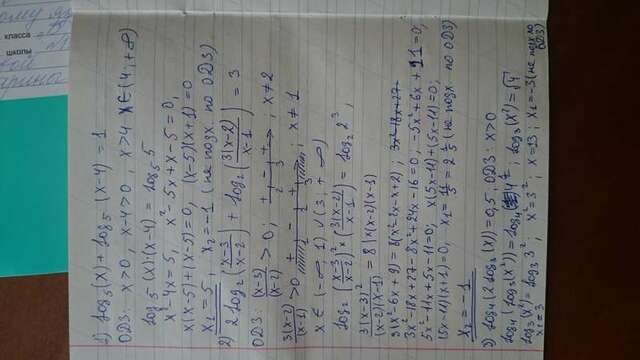 класса
школы
1) log₅(x) + log₅(x-4) = 1
ОДЗ: x>0, x-4>0, x>4 x∈(4;+∞)
log₅(x)·(x-4) = log₅5
x²-4x=5, x²-5x+x-5=0,
x(x-5)+(x-5)=0, (x-5)(x+1)=0
x₁=5, x₂=-1 (не подх. по ОДЗ)
2) 2log₂((x-3)/(x-2)) + log₂(3(x-2)/(x-1)) = 3
ОДЗ: (x-3)/(x-2) > 0; x≠2
3(x-2)/(x-1) > 0 x≠1
x∈(-∞;1)∨(3;+∞)
log₂((x-3)/(x-2))²×(3(x-2)/(x-1)) = log₂2³;
3(x-3)²/(x-2)(x-1) = 8 |(x-2)(x-1)
3(x²-6x+9)=8(x²-2x-x+2);
3x²-18x+27-8x²+24x-16=0; -5x²+6x+11=0;
5x²-11x+5x-11=0; x(5x-11)+(5x-11)=0;
(5x-11)(x+1)=0; x₁=11/5=2 1/5 (не подх по ОДЗ)
x₂=-1
3) log₄(2log₃(x))=0,5, ОДЗ: x>0
log₄(log₃(x²))=log₄ 4^½; log₃(x²)=√4
log₃(x²)=log₃3²; x²=3²; x=±3; x₂=-3 (не подх по ОДЗ)
x₁=3